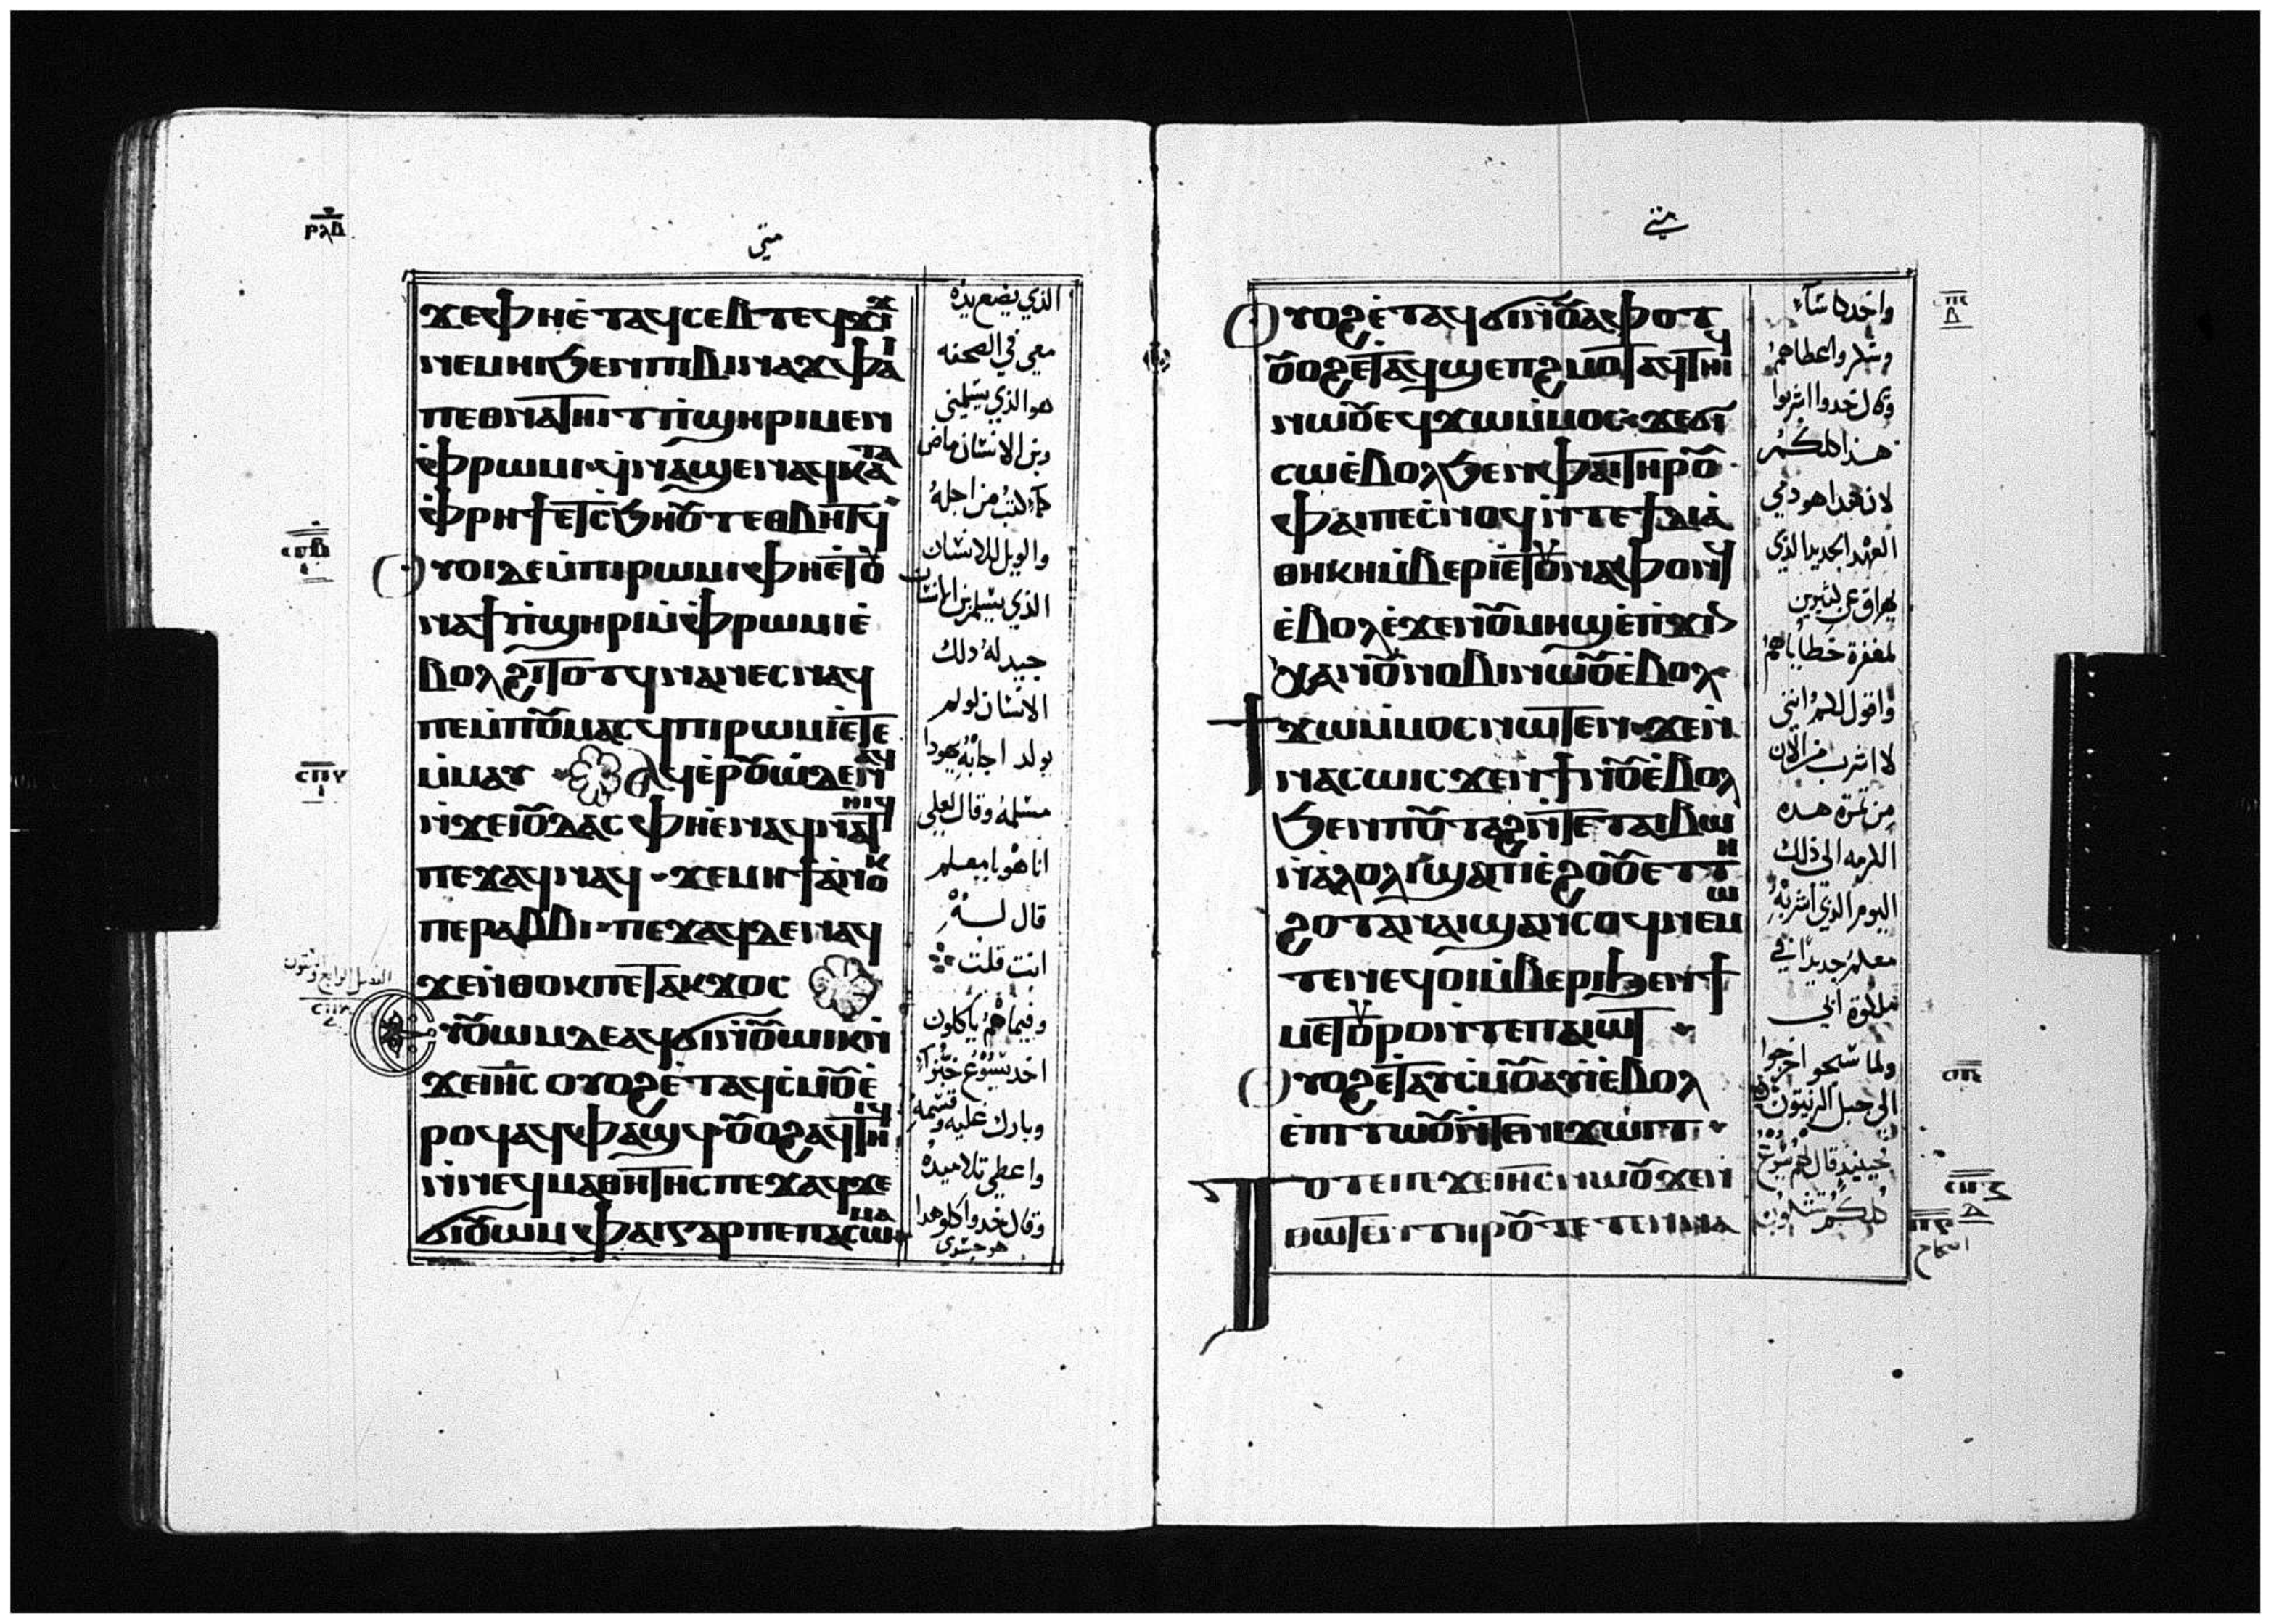 ⲣⲗⲇ
متي
ϫⲉⲫⲏⲉ̀ⲧⲁϥⲥⲉⲃⲧⲉϥϫⲓϫ
ⲛⲉⲙⲏⲓϧⲉⲛⲡⲓⲃⲓⲛⲁϫⲫⲁⲓ
ⲡⲉⲑⲛⲁⲧⲏⲓⲧⲡ̀ϣⲏⲣⲓⲙⲉⲛ
ⲙ̀ⲫⲣⲱⲙⲓϥ̀ⲛⲁϣⲉⲛⲁϥⲕⲁⲧⲁ
ⲫ̀ⲣⲏϯⲉⲧⲥ̀ϧⲏⲟⲩⲧⲉⲑⲃⲏⲧϥ
ⲟⲩⲟⲓⲇⲉⲙ̀ⲡⲓⲣⲱⲙⲓⲫⲏⲉ̀ⲧⲟⲩ
ⲛⲁϯⲡ̀ϣⲏⲣⲓⲙ̀ⲫ̀ⲣⲱⲙⲓⲉ̀
ⲃⲟⲗϩⲓⲧⲟⲧϥⲛⲁⲛⲉⲥⲛⲁϥ
ⲡⲉⲙ̀ⲡⲟⲩⲙⲁⲥϥⲡⲓⲣⲱⲙⲓⲉ̀ⲧⲉ
ⲙ̀ⲙⲁⲩ ⲁϥⲉ̀ⲣⲟⲩⲱ̀ⲇⲉⲛϥ
ⲛ̀ϫⲉⲓⲟⲩⲇⲁⲥ ⲫⲏⲉ̀ⲛⲁϥⲛⲁⲧⲏⲓϥ
ⲡⲉϫⲁϥⲛⲁϥ ϫⲉⲙⲏϯⲁ̀ⲛⲟⲕ
ⲡⲉⲣⲁⲃⲃⲓ ⲡⲉϫⲁϥⲇⲉⲛⲁϥ
ϫⲉⲛ̀ⲑⲟⲕⲡⲉⲧⲁⲕϫⲟⲥ
ⲉⲩⲟⲩⲱⲙⲇⲉⲁϥϭⲓⲛ̀ⲟⲩⲱⲓⲕⲛ̀
ϫⲉⲓⲏⲥ ⲟⲩⲟϩⲉ̀ⲧⲁϥⲥ̀ⲙⲟⲩⲉ̀
ⲣⲟϥⲁϥⲫⲁϣϥ ⲟⲩⲟϩⲁϥⲧⲏⲓϥ
ⲛ̀ⲛⲉϥⲙⲁⲑⲏⲧⲏⲥ ⲡⲉϫⲁϥϫⲉ
ϭⲓⲟⲩⲱⲙ ⲫⲁⲓⲅⲁⲣⲡⲉⲡⲁⲥⲱⲙⲁ
الذي يضع يده
معي في الصحفه
هو الذي يسلمني
وبن الانسان ماض
كما كتب من اجله
والويل للانسان
الذي يسلم بن الانسان
جيد له دلك
الانسان لو لم
يولد اجابه يهودا
مسلمه وقال لعلي
انا هو يا معلم
قال له
انت قلت
وفيما هم ياكلون
اخد يسوع خبزا
وبارك عليه وقسمه
واعطي تلاميده
وقال خدوا كلو هدا
هو جسدي
متي
ⲟⲩⲟϩⲉ̀ⲧⲁϥϭⲓⲛ̀ⲟⲩⲁⲫⲟⲧ
ⲟⲩⲟϩⲉⲧⲁϥϣⲉⲡϩⲙⲟⲧⲁϥⲧⲏⲓϥ
ⲛⲱⲟⲩⲉϥϫⲱⲙ̀ⲙⲟⲥ ϫⲉϭⲓ
ⲥⲱⲉ̀ⲃⲟⲗϧⲉⲛⲫⲁⲓⲧⲏⲣⲟⲩ
ⲫⲁⲓⲡⲉⲥ̀ⲛⲟϥⲛ̀ⲧⲉϯⲇⲓⲁ
ⲑⲏⲕⲏⲙ̀ⲃⲉⲣⲓⲉ̀ⲧⲟⲩⲛⲁⲫⲟⲛϥ
ⲉ̀ⲃⲟⲗⲉ̀ϫⲉⲛⲟⲩⲙⲏϣⲉ̀ⲡϫⲓⲛ
ⲭⲁⲛⲟⲩⲛⲟⲃⲓⲛⲱⲟⲩⲉ̀ⲃⲟⲗ
ϯϫⲱⲙ̀ⲙⲟⲥⲛⲱⲧⲉⲛ ϫⲉⲛ̀
ⲛⲁⲥⲱⲓⲥϫⲉⲛϯⲛⲟⲩⲉ̀ⲃⲟⲗ
ϧⲉⲛⲡⲟⲩⲧⲁϩⲛ̀ⲧⲉⲧⲁⲓⲃⲱ
ⲛ̀ⲁ̀ⲗⲟⲗⲓϣⲁⲡⲓⲉ̀ϩⲟⲟⲩⲉⲧⲧⲏ
ϩⲟⲧⲁⲛⲁⲓϣⲁⲛⲥⲟϥⲛⲉⲙⲱ
ⲧⲉⲛⲉϥⲟⲓⲙ̀ⲃⲉⲣⲓϧⲉⲛϯ
ⲙⲉⲧⲟⲩⲣⲟⲛ̀ⲧⲉⲡⲁⲓⲱⲧ
ⲟⲩⲟϩⲉⲧⲁⲩⲥ̀ⲙⲟⲩⲁⲩⲓ̀ⲉ̀ⲃⲟⲗ
ⲉ̀ⲡⲓⲧⲱⲟⲩⲛ̀ⲧⲉⲛⲓϫⲱⲓⲧ
ⲧⲟⲧⲉⲡⲉϫⲉⲓⲏⲥⲛⲱⲟⲩϫⲉⲛ̀
ⲑⲱⲧⲉⲛⲧⲏⲣⲟⲩⲧⲉⲧⲉⲛⲛⲁ
واخد كاسا
وشكر واعطاهم
وقال خدوا اشربوا
هذا كلكم
لان هذا هو دمي
العهد الجديد الذي
يهراق عن كثيرين
لمغفرة خطاياهم
واقول لكم انني
لا اشرب من الان
من ثمرة هده
الكرمه الي ذلك
اليوم الذي اشربه
معكم جديدا في
ملكوة ابي
ولما سبحو اخرجوا
الي جبل الزيتون
حينيذ قال لهم يسوع
كلكم تشكون